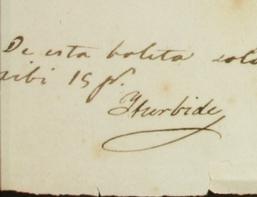 De esta boleta solo
cibi 15 ps.
Yturbide